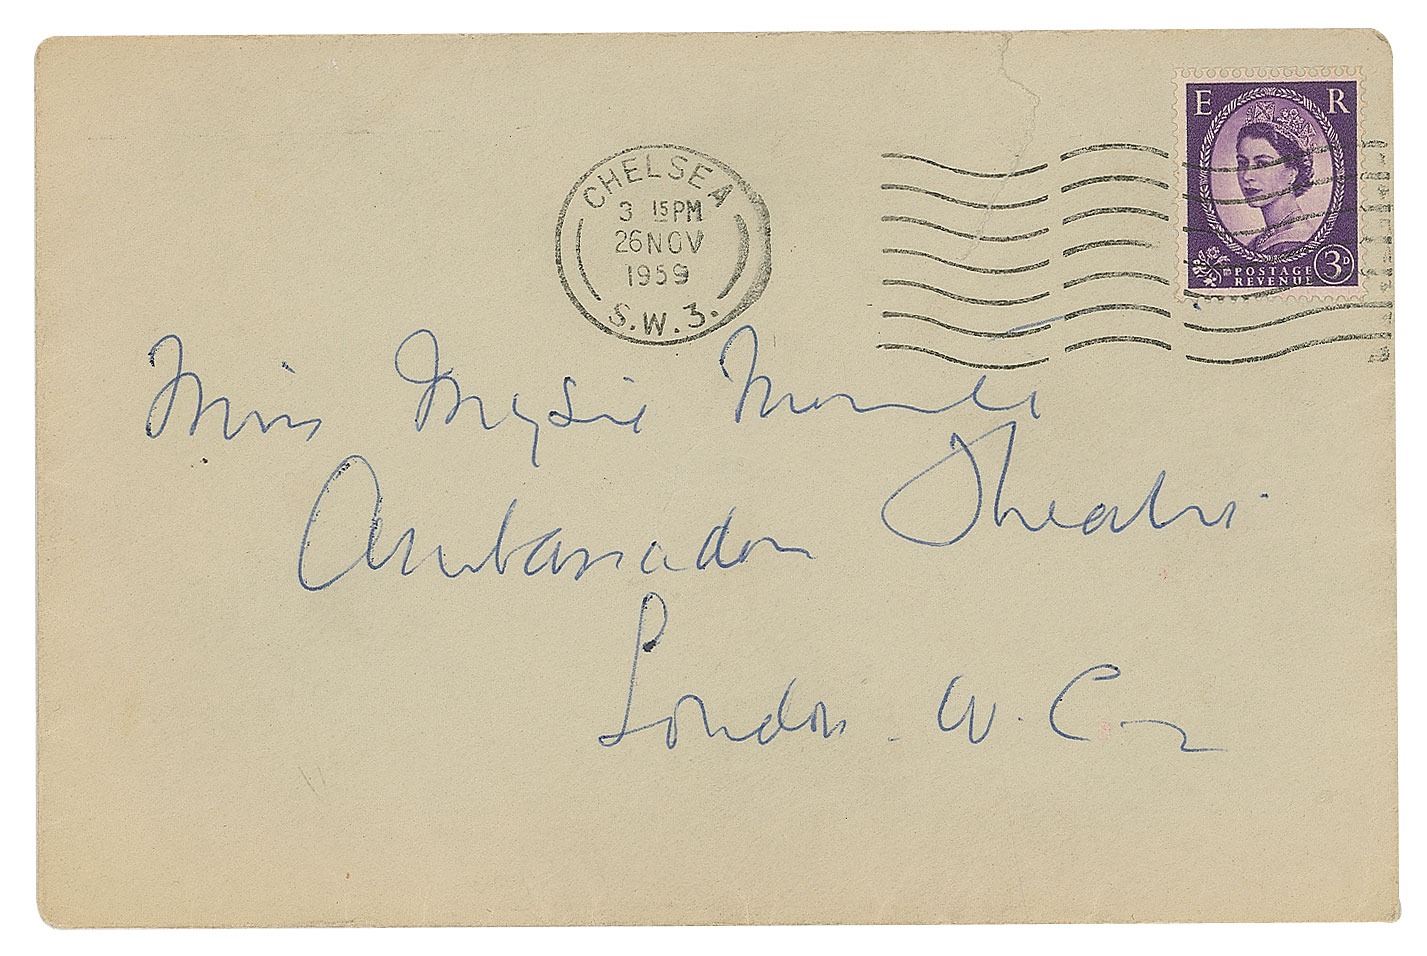 E R
POSTAGE
REVENUE
3D
CHELSEA
3 15 PM
26 NOV
1959
S.W.3.
Miss Mysie Monte
Ambassadors Theatre
London. W.C.2